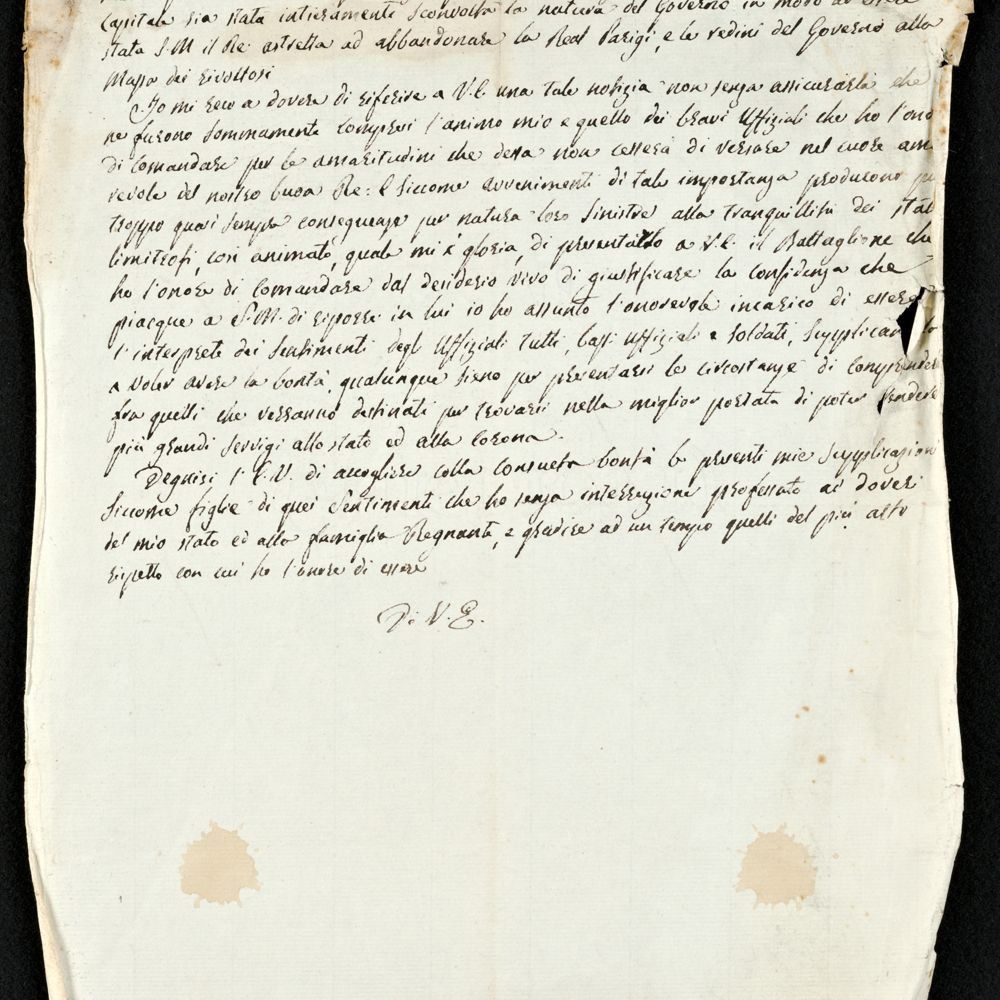 Capitale sia stata intieramente sconvolta la natura del Governo in modo
stata S.M il Re astretta ad abbandonare la Real Parigi, e le redini del Governo alla
Massa dei rivoltosi
Io mi reco a dovere di riferire a V.E. una tale notizia non senza assicurarla che
ne furono sommamente compresi l'animo mio e quello dei bravi Uffiziali che ho l'ono
di Comandare per le amaritudini che dessa non cesserà di versare nel cuore amo
revole del nostro buon Re: E siccome avvenimenti di tale importanza producono pur
troppo quasi sempre conseguenze per natura loro sinistre alla tranquillità dei Stati
limitrofi, così animato, quale mi è gloria, di presentarlo a V.E. il Battaglione che
ho l'onore di Comandare dal desiderio vivo di giustificare la confidenza che
piacque a S.M. di riporre in lui io ho assunto l'onorevole incarico di essere
l'interprete dei sentimenti degli Uffiziali tutti, Bassi Uffiziali e Soldati, Supplicandola
a voler avere la bontà, qualunque sieno per presentarsi le circostanze di comprenderli
fra quelli che verranno destinati per trovarsi nella miglior portata di poter rendere
più grandi servigi allo stato ed alla Corona.
Degnisi l'E.V. di accogliere colla consueta bontà le presenti mie Supplicazioni
siccome figlie di quei Sentimenti che ho senza interruzione professato ai doveri
del mio stato ed alla famiglia Regnante, e gradire ad un tempo quelli del più alto
rispetto con cui ho l'onore di essere
Di V.E.